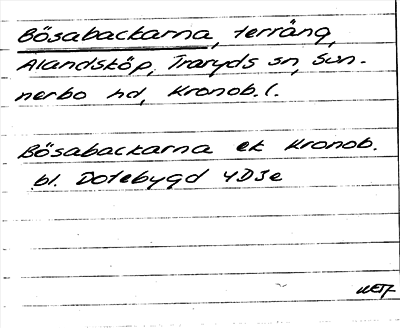 Bösabackarna, terräng,
Ålandsköp, Traryds sn, Sun-
nerbo hd, Kronob. l.
Bösabackarna ek Kronob.
bl. Dotebygd 4D3e